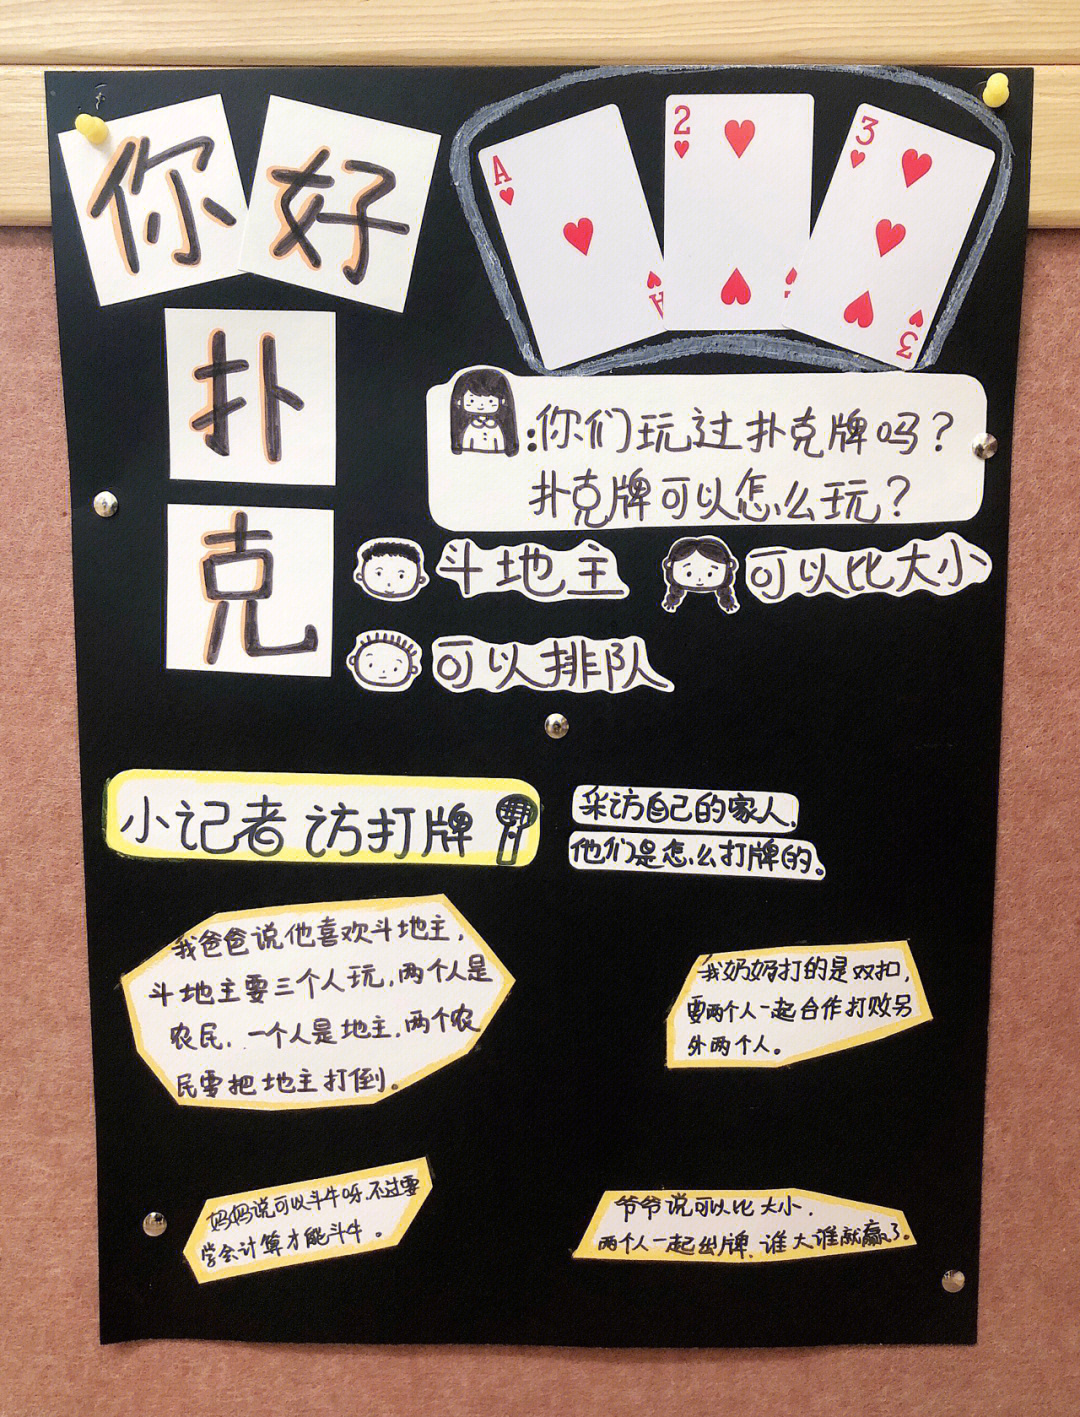 你好
扑
克
A
2
3
A
3
:你们玩过扑克牌吗？
扑克牌可以怎么玩？
斗地主
可以比大小
可以排队
小记者访打牌
采访自己的家人，
他们是怎么打牌的。
我爸爸说他喜欢斗地主，
斗地主要三个人玩，两个人是
农民，一个人是地主，两个农
民要把地主打倒。
我奶奶打的是双扣，
要两个人一起合作打败另
外两个人。
妈妈说可以斗牛呀，不过要
学会计算才能斗牛。
爷爷说可以比大小，
两个人一起出牌，谁大谁就赢了。